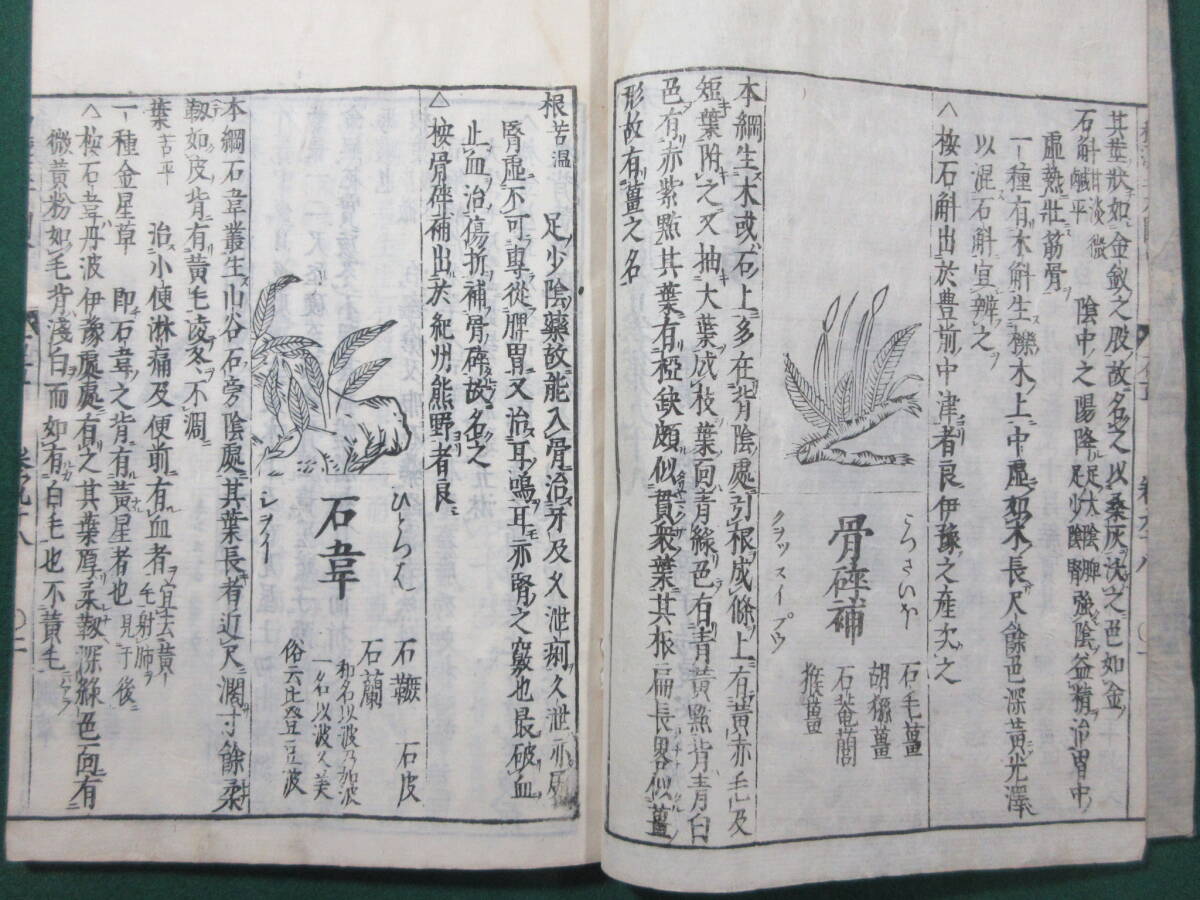 其莖狀如金釵之股故名之以桑灰沃之色如金
石斛 甘淡微鹹平 陰中之陽降足太陰脾足少陰腎強陰益精治胃中
虛熱壯筋骨
一種有木斛生櫟木上中虛如木長尺餘色深黃光澤
以混石斛宜辨之
△桉石斛出於豊前中津者良伊豫之產次之
骨碎補
クヲツスイプウ
石毛薑
胡猻薑
石菴䕡
猴薑
本綱生木或石上多在背陰處引根成條上有黃赤毛及
短葉附之又抽大葉成枝葉面青綠色有青黃點背青白
色有赤紫點其葉有椏缺頗似貫衆葉其根扁長畧似薑
形故有薑之名
根 苦溫 足少陰藥故能入骨治牙及久泄痢久泄亦屬
腎虛不可專從脾胃又治耳鳴耳亦腎之竅也最破血
止血治傷折補骨碎故名之
△桉骨碎補出於紀州熊野者良
石韋
ひとつは
シヲイ
石䩾 石皮
石蘭
和名以波乃加波
一名以波久美
俗云比登豆波
本綱石韋叢生山谷石旁陰處其葉長者近尺濶寸餘柔
靱如皮背有黃毛凌冬不凋
葉 苦平 治小便淋痛及便前有血者 宜去黃毛射肺
一種金星草 即石韋之背有黃星者也 見于後
△桉石韋丹波伊豫處處有之其葉厚柔靱深綠色面有
微黃粉如毛背淺白而如有白毛也不黃毛